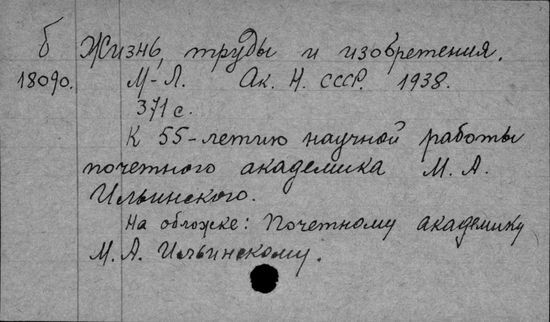 б Жизнь, труды и изобретения.
18090. М-Л. Ак. Н. СССР. 1938.
371 с.
К 55-летию научной работы
почетного академика М. А.
Ильинского.
На обложке: Почетному академику
М. А. Ильинскому.